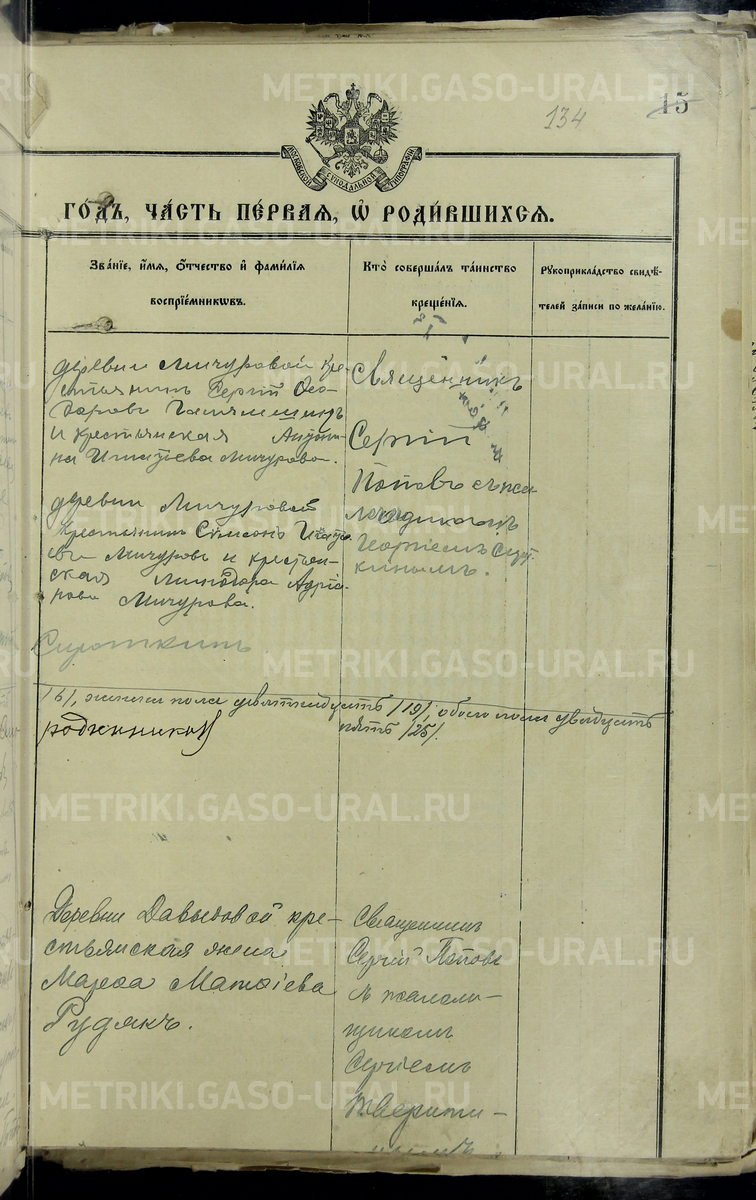 METRIKI.GASO-URAL.RU
134
15
МОСКОВСКОЙ СѴНОДАЛЬНОЙ ТИПОГРАФІИ
ГО́ДЪ, ЧА́СТЬ ПЕ́РВАЯ, Ѡ҆ РОДИ́ВШИХСЯ.
Зва́нїе, и҆́мя, ѻ҆́тчество и҆ фами́лїя
воспрїе́мникѡвъ.
Кто̀ соверша́лъ та́инство
креще́нїя.
Рꙋкоприкла́дство свидѣ́-
телей за́писи по жела́нїю.
деревни Мичуровой кре-
стьянинъ Сергій Ѳео-
доровъ
и крестьянская Антони-
на Игнатьева Мичурова.
деревни Мичуровой
крестьянинъ Симеонъ Игнать-
евъ Мичуровъ и крестьян-
ская Минодора Адріа-
нова Мичурова.
Священникъ
Сергій
Поповъ съ пса-
ломщикомъ
Георгіемъ Сирот-
кинымъ.
Сироткинъ
/6/, женска пола девятнадцать /19/, обоего пола двадцать
пять /25/.
METRIKI.GASO-URAL.RU
Деревни Давыдовой кре-
стьянская жена
Марѳа Матѳіева
Рудякъ.
Священникъ
Сергій Поповъ
съ псалом-
щикомъ
Сергіемъ
Тверити-
нымъ
METRIKI.GASO-URAL.RU